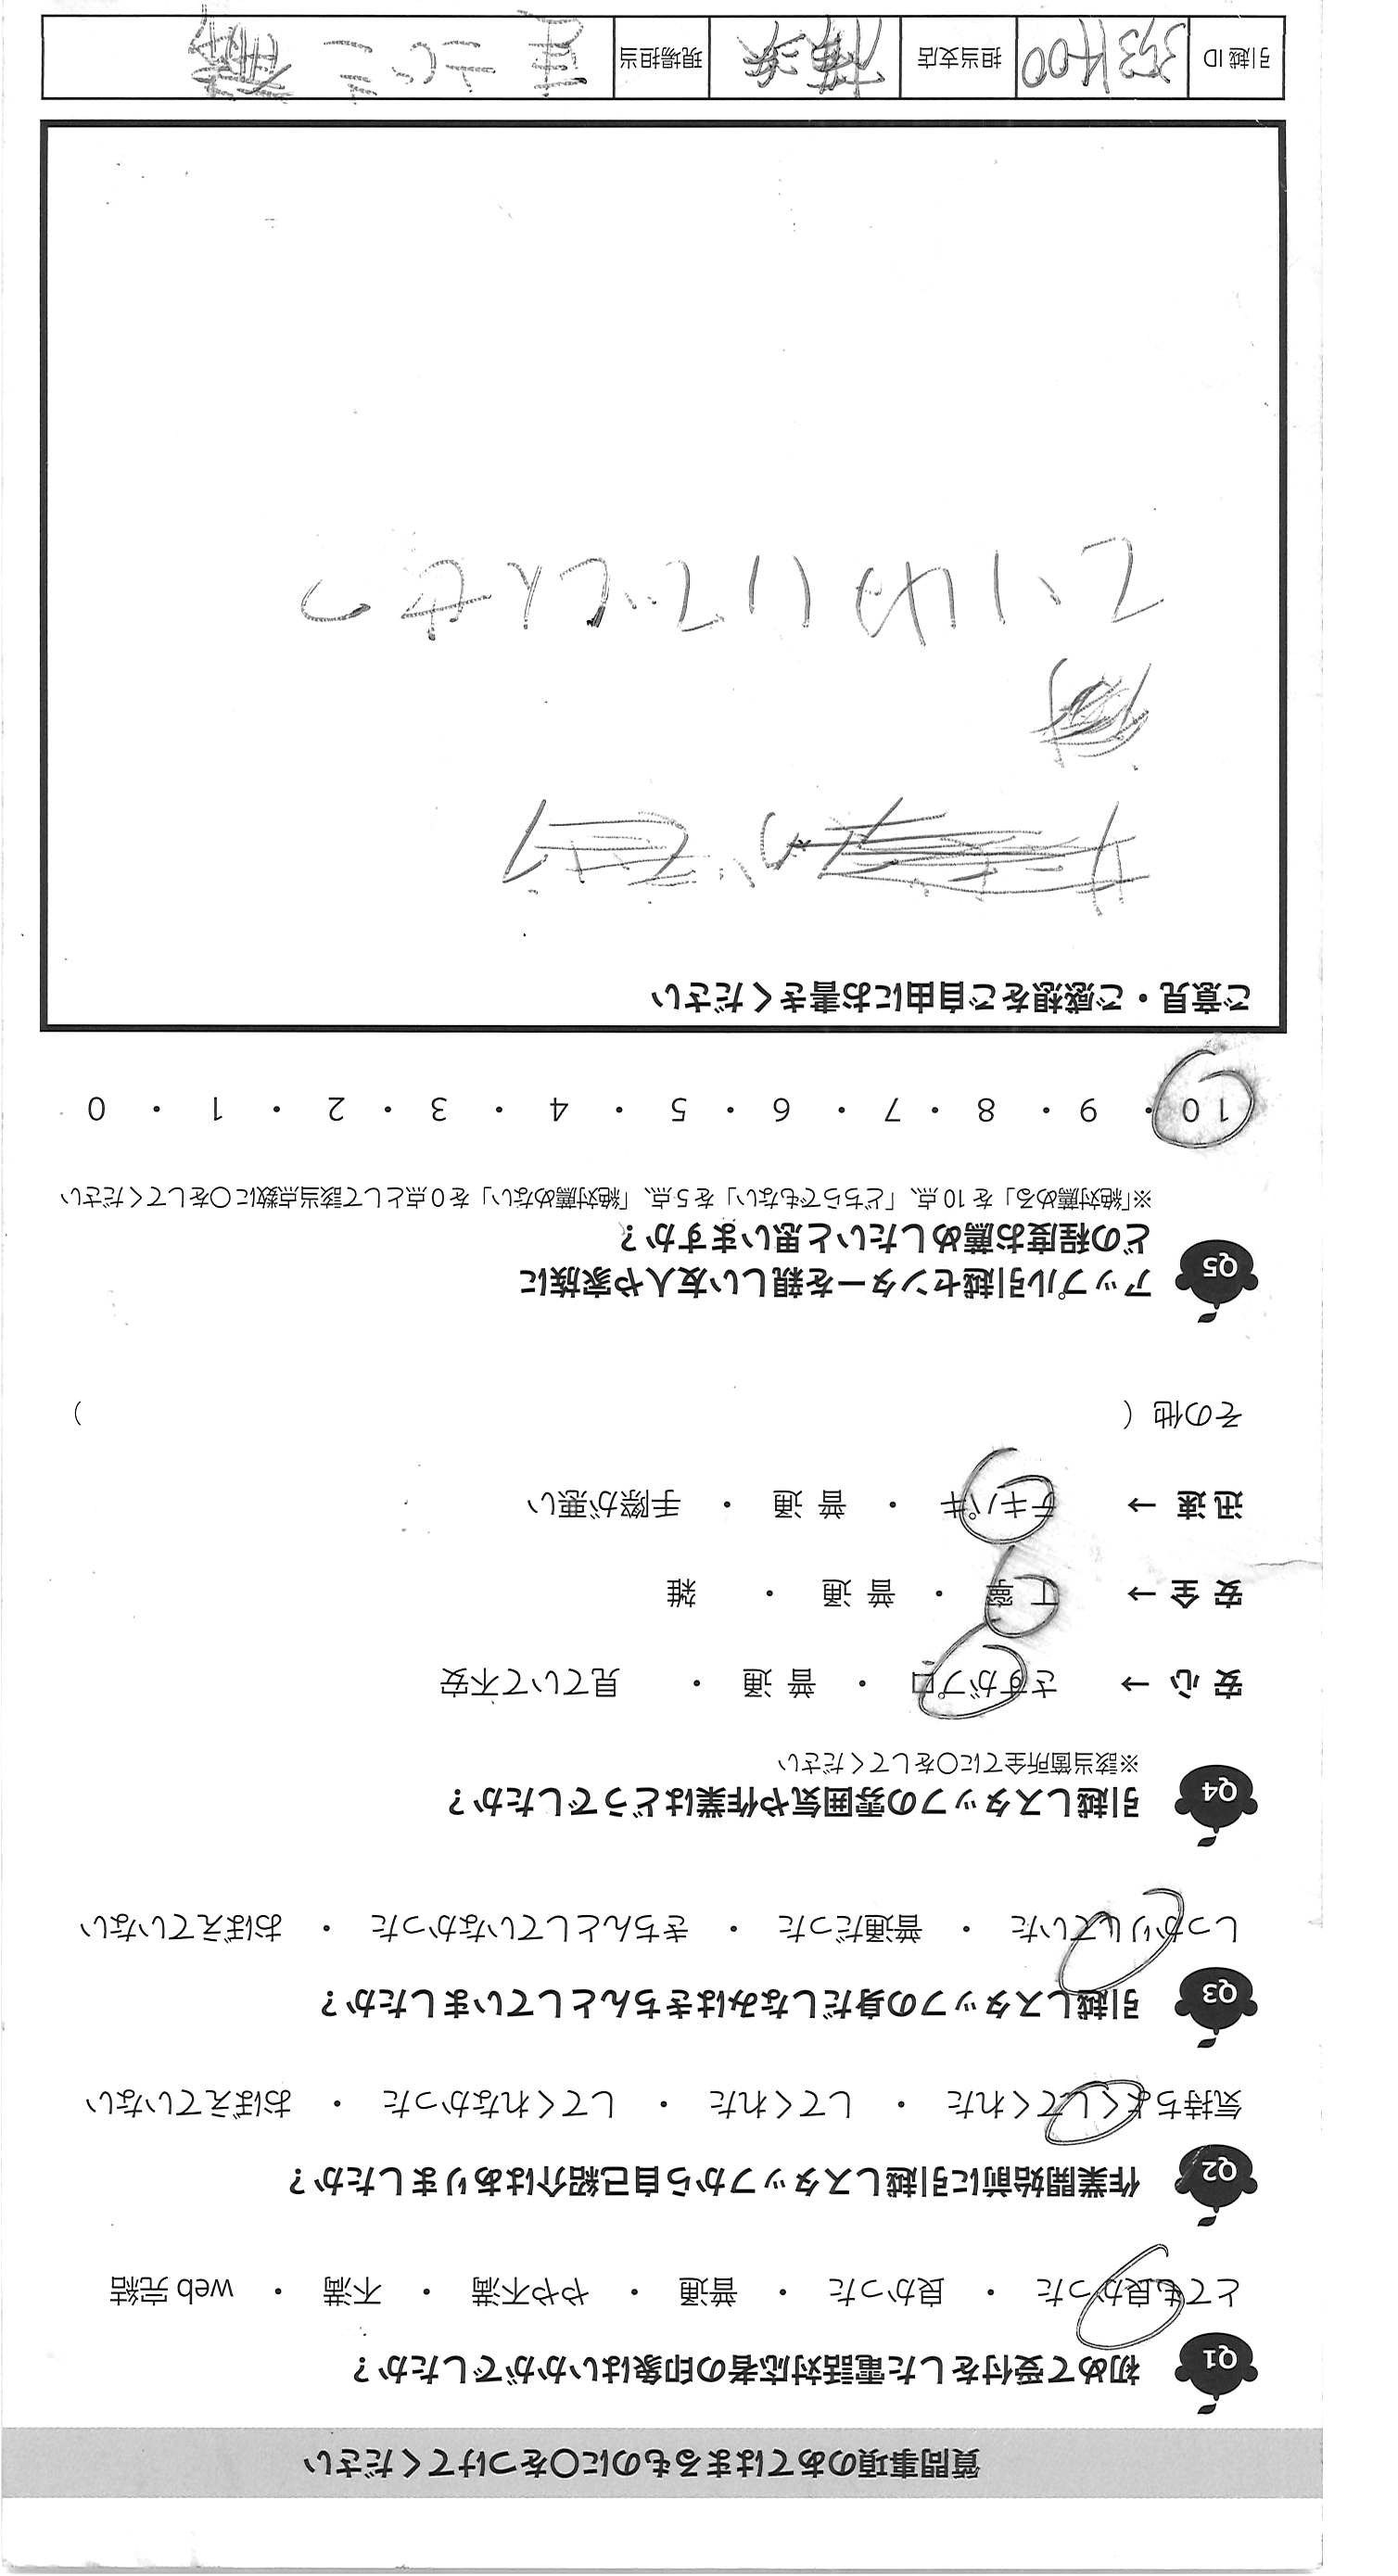 質問事項のあてはまるものに〇をつけてください
Q1 初めて受付をした電話対応者の印象はいかがでしたか？
とても良かった ・ 良かった ・ 普通 ・ やや不満 ・ 不満 ・ web 完結
Q2 作業開始前に引越しスタッフから自己紹介はありましたか？
気持ちよくしてくれた ・ してくれた ・ してくれなかった ・ おぼえていない
Q3 引越しスタッフの身だしなみはきちんとしていましたか？
しっかりしていた ・ 普通だった ・ きちんとしていなかった ・ おぼえていない
Q4 引越しスタッフの雰囲気や作業はどうでしたか？
※該当箇所全てに〇をしてください
安 心 → さすがプロ ・ 普 通 ・ 見ていて不安
安 全 → 丁 寧 ・ 普 通 ・ 雑
迅 速 → テキパキ ・ 普 通 ・ 手際が悪い
その他（ ）
Q5 アップル引越センターを親しい友人や家族に
どの程度お薦めしたいと思いますか？
※「絶対薦める」を 10 点、「どちらでもない」を 5 点、「絶対薦めない」を 0 点として該当点数に〇をしてください
10 ・ 9 ・ 8 ・ 7 ・ 6 ・ 5 ・ 4 ・ 3 ・ 2 ・ 1 ・ 0
ご意見・ご感想をご自由にお書きください
引越 ID 353400 担当支店 現場担当